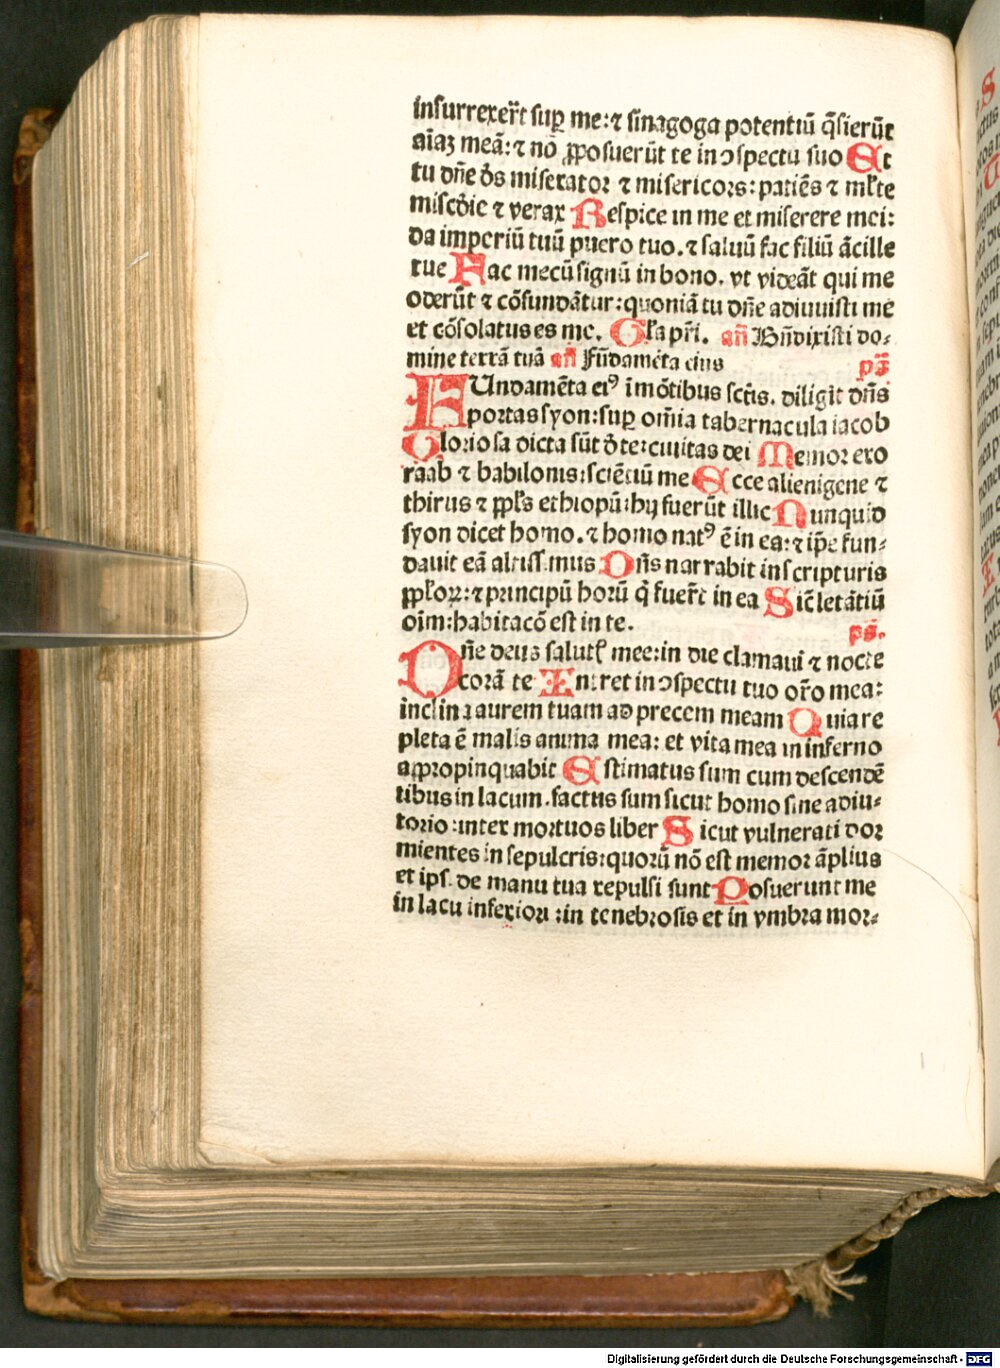 insurrexer̃t suꝑ me:⁊ sinagoga potentiũ q̃sierũt
aĩaʒ meã:⁊ nõ ꝓposuerũt te in ↄspectu suo Et
tu dñe ds̃ miserator ⁊ misericors: patiẽs ⁊ ml̃te
miscd̃ie ⁊ verax Respice in me et miserere mei:
da imperiũ tuũ puero tuo.⁊ saluũ fac filiũ ãcille
tue Fac mecũ signũ in bono. vt videãt qui me
oderũt ⁊ cõfundãtur:quoniã tu dñe adiuuisti me
et cõsolatus es me. Gl̃a pr̃i. añ Bñdixisti do⸗
mine terrã tuã añ Fũdamẽta eius
ps̃
FUndamẽta eiꝰ ĩ mõtibus sctĩs. diligit dñs
portas syon:suꝑ om̃ia tabernacula iacob
Gloriosa dicta sũt d̃ te:ciuitas dei Memor ero
raab ⁊ babilonis:sciẽtiũ me Ecce alienigene ⁊
thirus ⁊ ppl̃s ethiopũ:hij fuerũt illic Nunquid
syon dicet homo.⁊ homo natꝰ ẽ in ea:⁊ ip̃e fun⸗
dauit eã altissimus Dñs narrabit in scripturis
ppl̃oꝝ:⁊ principũ horũ q̃ fuer̃t in ea Sic̃ letãtiũ
oĩm:habitacõ est in te.
ps̃.
Dñe deus salutꝭ mee:in die clamaui ⁊ nocte
corã te Intret in ↄspectu tuo or̃o mea:
inclina aurem tuam ad precem meam Quia re
pleta ẽ malis anima mea: et vita mea in inferno
appropinquabit Estimatus sum cum descendẽ
tibus in lacum.factus sum sicut homo sine adiu⸗
torio:inter mortuos liber Sicut vulnerati dor
mientes in sepulcris:quorũ nõ est memor ãplius
et ipsi de manu tua repulsi sunt Posuerunt me
in lacu inferiori:in tenebrosis et in vmbra mor⸗
Digitalisierung gefördert durch die Deutsche Forschungsgemeinschaft - DFG